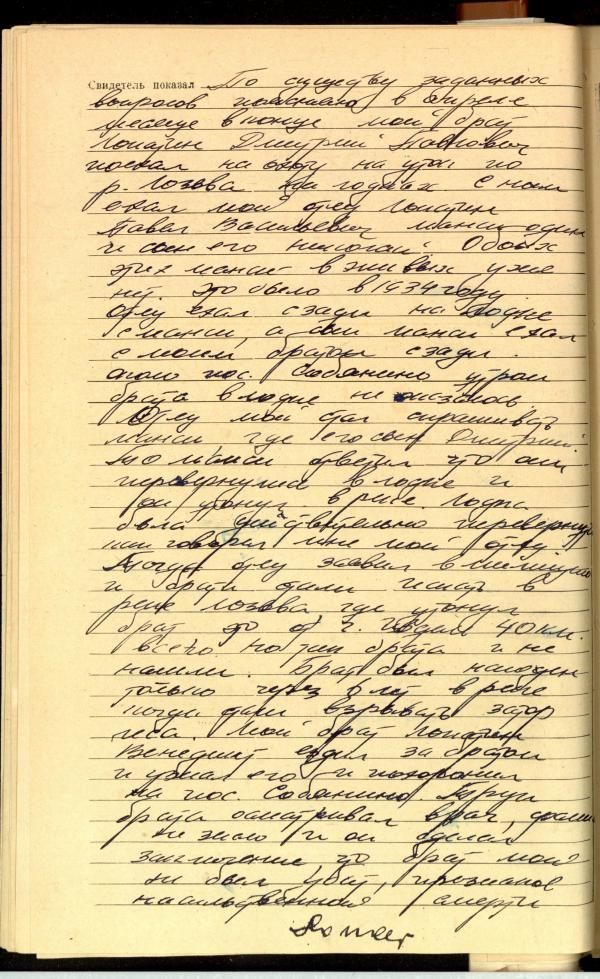 Свидетель показал По существу заданных
вопросов поясняю в апреле
месяце в конце мой брат
Лопатин Дмитрий Павлович
поехал на охоту на уток по
р. Лозьва на лодках с ним
ехал мой отец Лопатин
Павел Васильевич манси один
и сын его Николай Обоих
этих манси в живых уже
нет. Это было в 1934 году.
Отец ехал сзади на лодке
с манси, а сын манси ехал
с моим братом сзади.
около пос. Собянино утром
брата в лодке не оказалось.
Отец мой стал спрашивать
манси, где его сын Дмитрий.
то манси ответил что они
перевернулись в лодке и
он утонул в реке. Лодка
была действительно перевернута
говорил мне мой отец.
Тогда отец заявил в милицию
и брата стали искать в
реке Лозьва где утонул
брат это от г. Ивдель 40 км.
всего но тип брата и не
нашли. Брат был найден
только через 6 лет в реке
когда стали взрывать затор
леса. Мой брат Лопатин
Венедикт ездил за братом
и узнал его и похоронил
на пос. Собянино. Труп
брата осматривал врач,
не знаю и он сделал
заключение что брат мой
не был убит, признаков
насильственной смерти